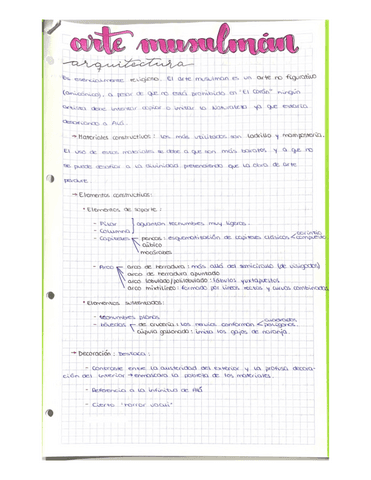 arte musulmán
arquitectura
Es esencialmente religioso. El arte musulmán es un arte no figurativo
(anicónico), a pesar de que no está prohibido en "El Corán" ningún
artista debe intentar copiar o imitar la Naturaleza ya que estaría
desafiando a Alá.
→ Materiales constructivos: los más utilizados son ladrillo y mampostería.
El uso de estos materiales se debe a que son más baratos y a que no
se puede desafiar a la divinidad pretendiendo que la obra de arte
perdure
→ Elementos constructivos:
• Elementos de soporte:
- Pilar
- Columna
aguantan techumbres muy ligeras.
- Capiteles
pencas: esquematización de capiteles clásicos
corintio
compuesto
cúbico
mocárabes
- Arco
arco de herradura: más allá del semicírculo (de visigodos)
arco de herradura apuntado
arco lobulado/polilobulado: lóbulos yuxtapuestos
arco mixtilíneo: formado por líneas rectas y curvas combinadas
• Elementos sustentados:
- techumbres planas
- bóvedas
de crucería: los nervios conforman
cuadrados
polígonos
cúpula gallonada: imita los gajos de naranja.
→ Decoración: Destaca:
- Contraste entre la austeridad del exterior y la profusa decora-
ción del interior → enmascara la pobreza de los materiales.
- Referencia a la infinitud de Alá
- Cierto "horror vacui"